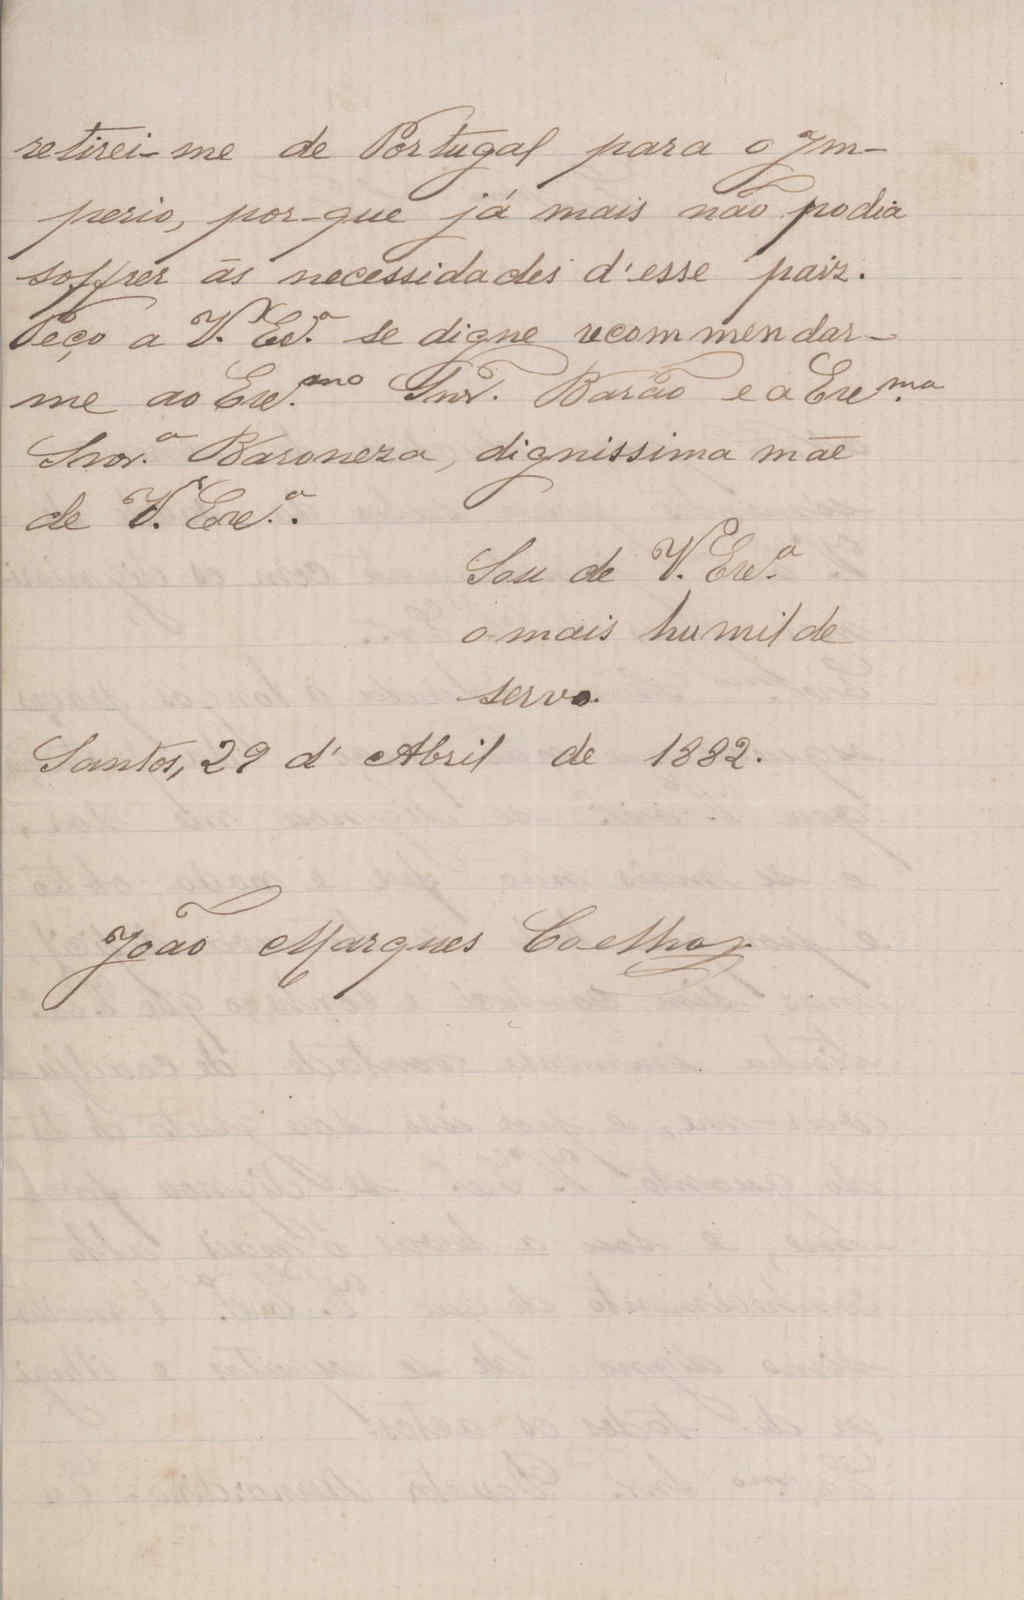 retirei-me de Portugal para o Im-
perio, por-que já mais não podia
soffrer ás necessidades d'esse paiz.
Peço a V. Exc.ª se digne recommendar-
me ao Exc.mo Snr. Barão e a Exc.ma
Snr.ª Baroneza, dignissima mãe
de V. Exc.ª.
Sou de V. Exc.ª
o mais humilde
servo.
Santos, 29 d' Abril de 1882.
João Marques Coelho